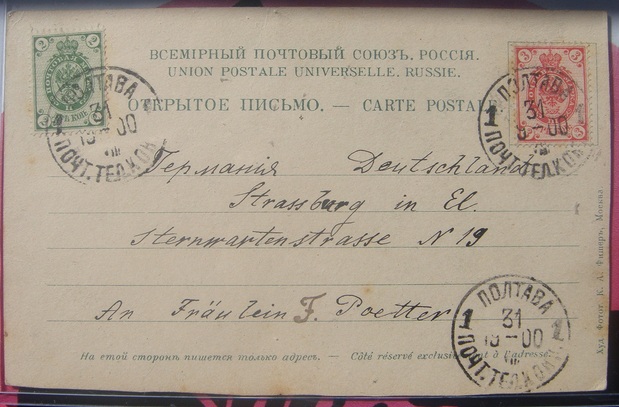 ВСЕМІРНЫЙ ПОЧТОВЫЙ СОЮЗЪ. РОССІЯ.
UNION POSTALE UNIVERSELLE. RUSSIE.
ОТКРЫТОЕ ПИСЬМО. — CARTE POSTALE
2 2
3 3
ПОЛТАВА
31
00
ПОЧТ. ТЕЛ. КОН.
ПОЛТАВА
31
1 1
00
ПОЧТ. ТЕЛ. КОН.
Германия Deutschland
Strassburg in El.
Sternwartenstrasse N 19
An Fräulein F. Poetter
ПОЛТАВА
31
1 1
00
ПОЧТ. ТЕЛ. КОН.
На этой сторонѣ пишется только адресъ. — Côté réservé exclusivement à l'adresse.
Худ. Фотот. К. А. Фишеръ, Москва.